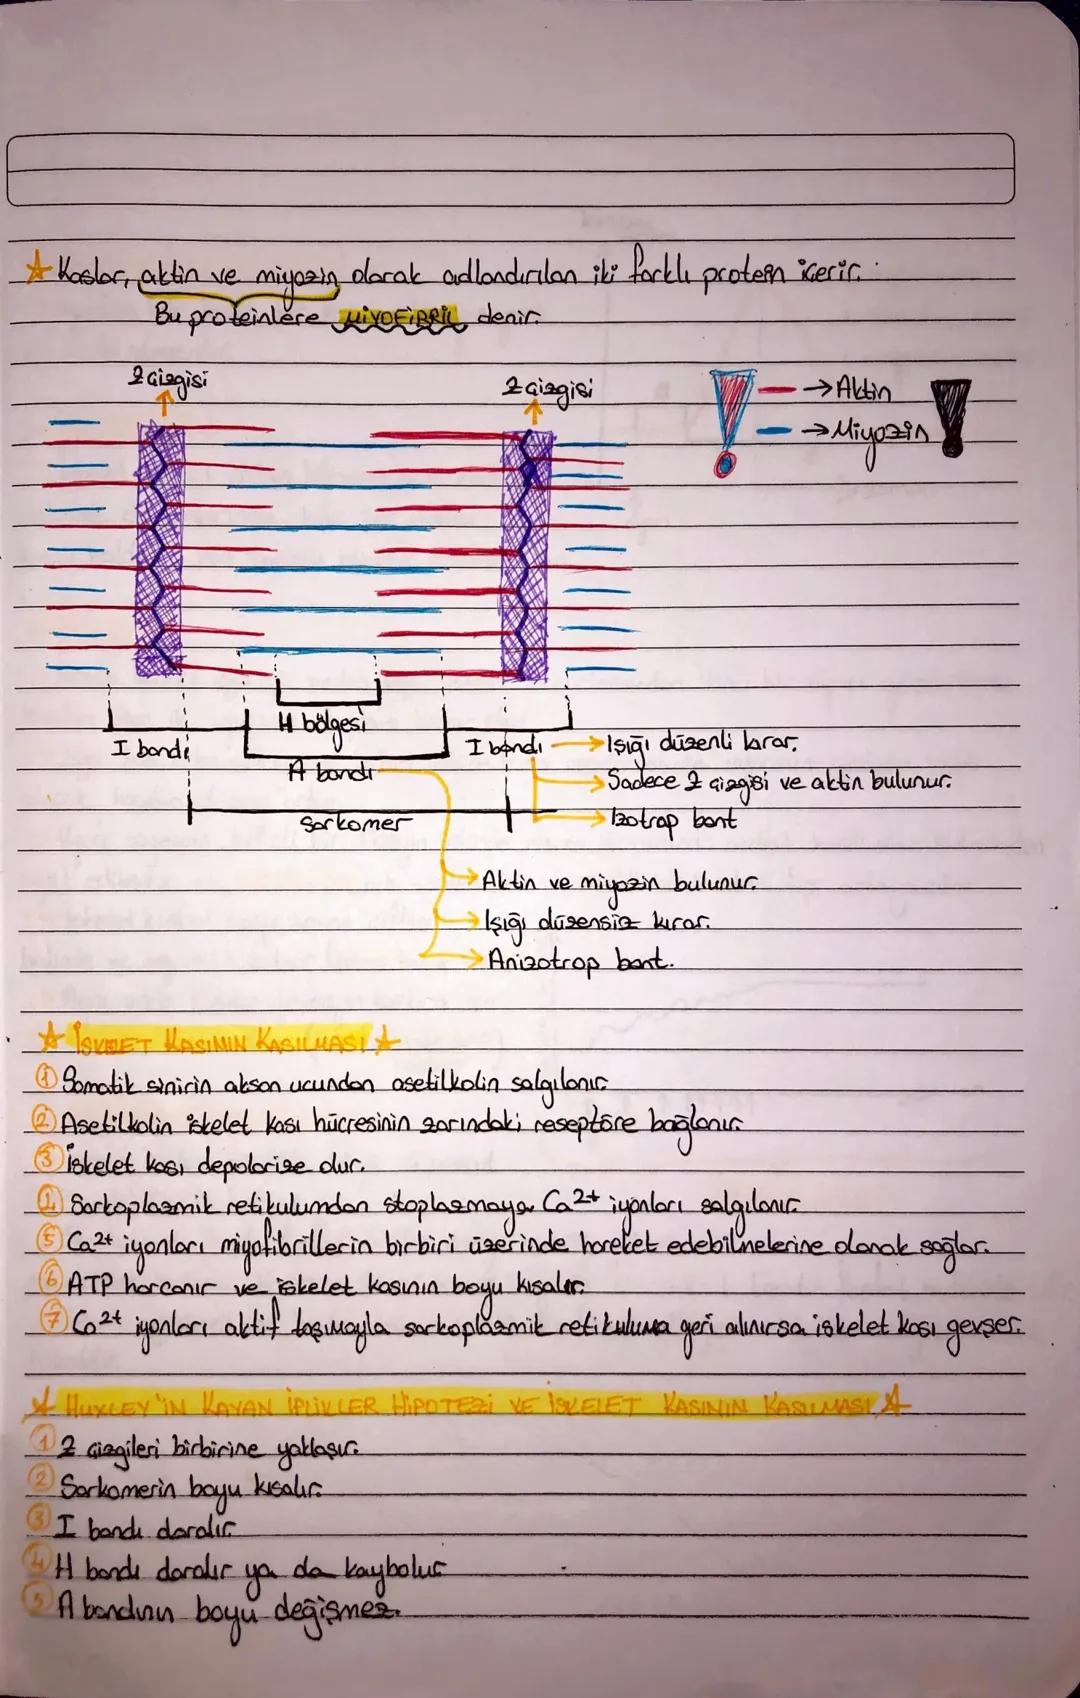 Kaslar, aktin ve miyozin olarak adlandırılan iki farklı protein içerir.
Bu proteinlere MİYOFİBRİL denir.
Z çizgisi
Z çizgisi
→ Aktin
→ Miyozin
H bölgesi
I bandı
I bandı → Işığı düzenli kırar.
A bandı
→ Sadece Z çizgisi ve aktin bulunur.
Sarkomer
→ İzotrop bant
→ Aktin ve miyozin bulunur.
→ Işığı düzensiz kırar.
→ Anizotrop bant.
İSKELET KASININ KASILMASI
1 Somatik sinirin akson ucundan asetilkolin salgılanır.
2 Asetilkolin iskelet kası hücresinin zarındaki reseptöre bağlanır.
3 İskelet kası depolarize olur.
4 Sarkoplazmik retikulumdan stoplazmaya Ca2+ iyonları salgılanır.
5 Ca2+ iyonları miyofibrillerin birbiri üzerinde hareket edebilmelerine olanak sağlar.
6 ATP harcanır ve iskelet kasının boyu kısalır.
7 Ca2+ iyonları aktif taşımayla sarkoplazmik retikuluma geri alınırsa iskelet kası gevşer.
HUXLEY'İN KAYAN İPLİKLER HİPOTEZİ VE İSKELET KASININ KASILMASI
1 Z çizgileri birbirine yaklaşır.
2 Sarkomerin boyu kısalır.
3 I bandı daralır.
4 H bandı daralır ya da kaybolur.
5 A bandının boyu değişmez.